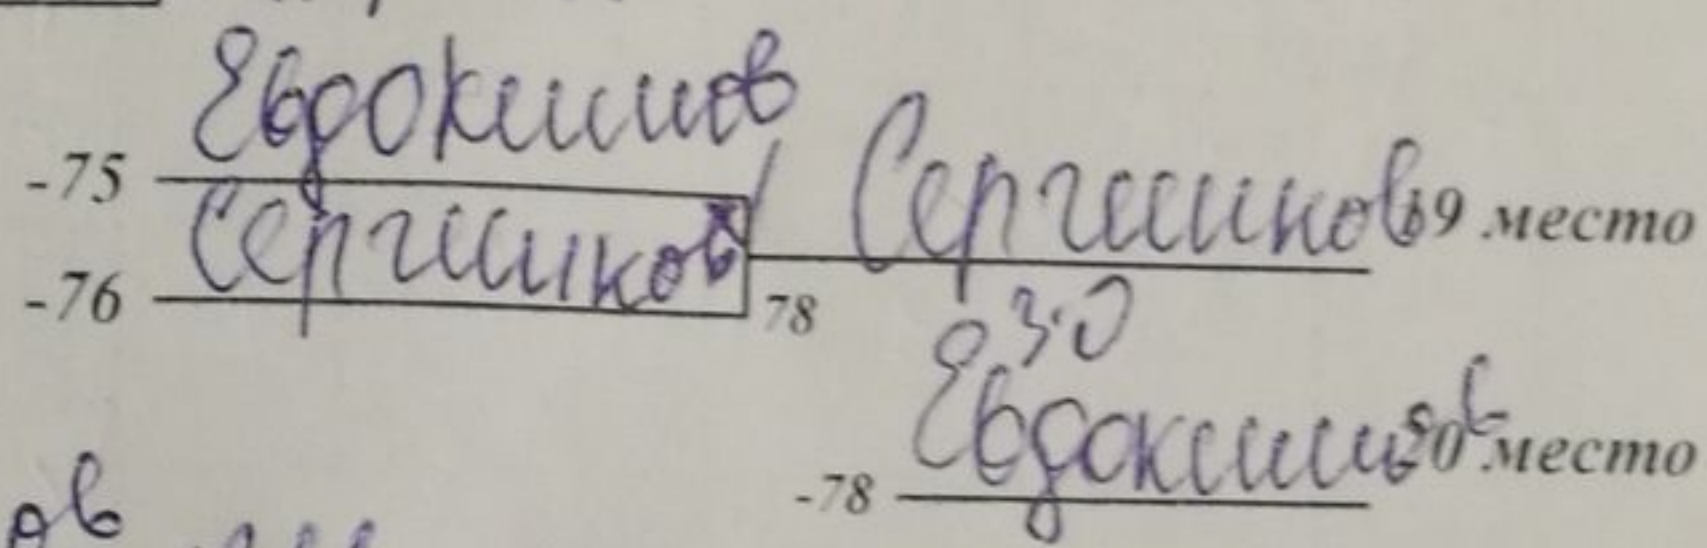 Евдокимов
-75
Сергиенков
-76
78
Сергиенков
место
3:0
Евдокимов
-78
место
ов